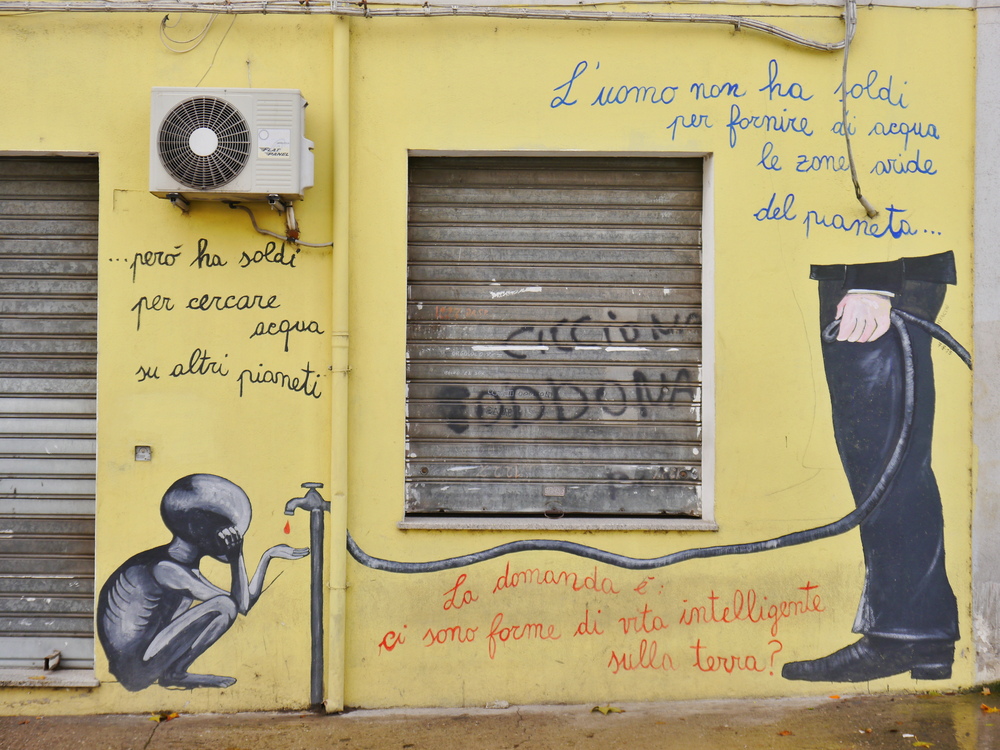 L'uomo non ha soldi
per fornire di acqua
le zone aride
del pianeta...
...però ha soldi
per cercare
acqua
su altri pianeti
La domanda è:
ci sono forme di vita intelligente
sulla terra?
FLAT
PANEL